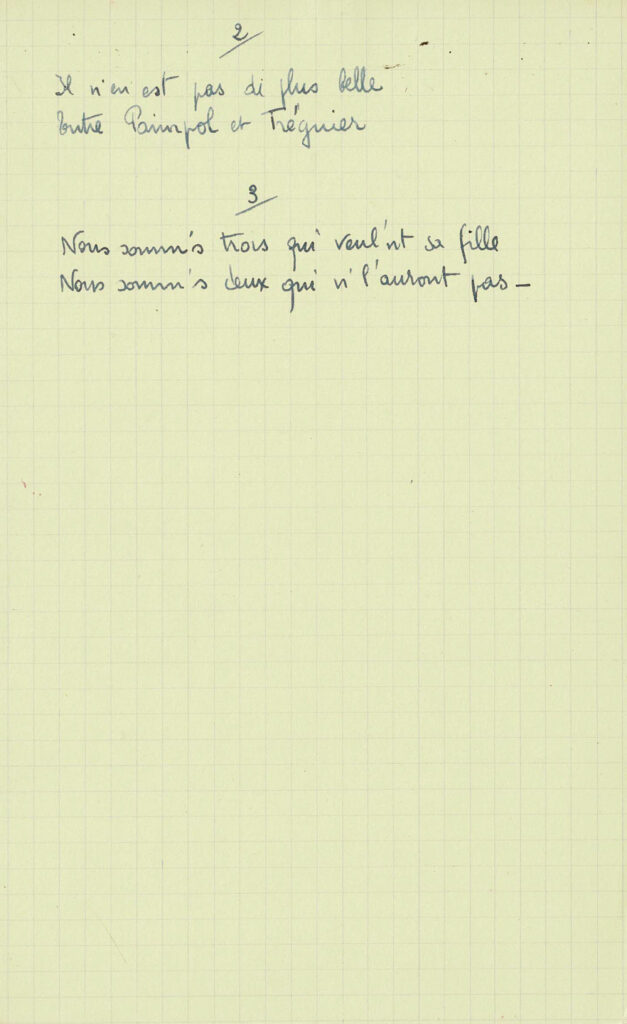 2
Il n'en est pas di plus belle
Entre Paimpol et Tréguier
3
Nous somm's trois qui veul'nt sa fille
Nous somm's deux qui n' l'auront pas _